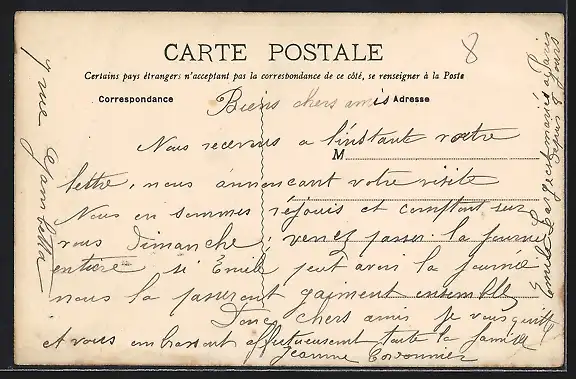 CARTE POSTALE
8
Certains pays étrangers n'acceptant pas la correspondance de ce côté, se renseigner à la Poste
Correspondance
Adresse
Biens chers amis
Nous recevons a l'instant votre
M
lettre, nous annoncant votre visite
Nous en sommes réjouis et comptont sur
vous Dimanche; venez passer la journée
entière si Émile peut avoir la journée
nous la passeront gaiment ensemble
Donc chers amis je vous quitte
et vous embrassant affectueusement toute la famille
Jeanne
7 rue Gambetta
Emile est marié a Paris
depuis 8 jours